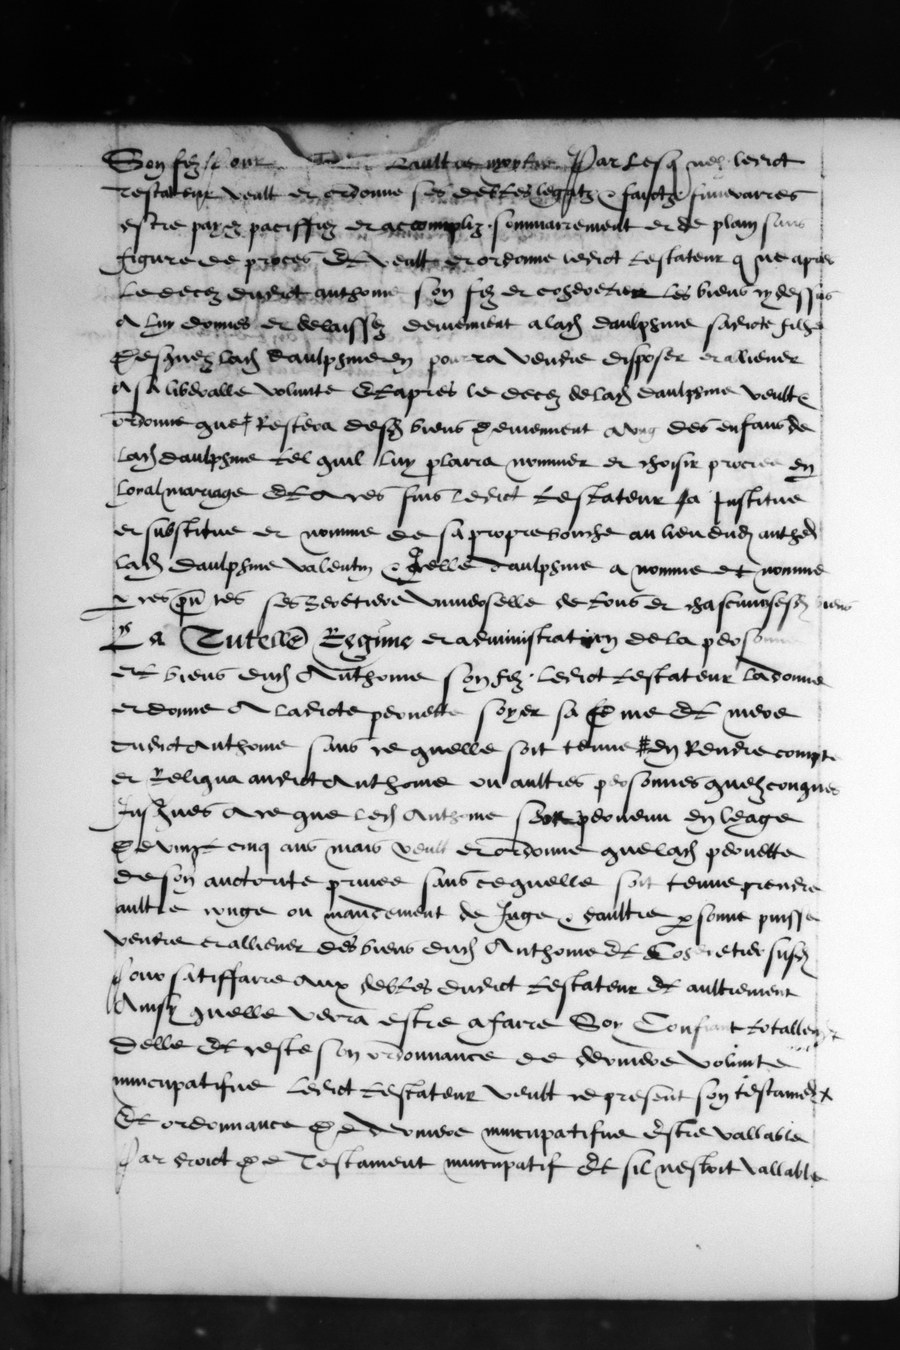 Son filz Par lesquelz ledict
testateur veult et ordonne ses debtes legatz & faictz funerarres
estre payez paciffiez et accompliz sommairement et de plain sans
figure de proces Et veult et ordonne ledict testateur que apres
le decez dudict anthoine son filz et coheretier les biens cy dessus
a luy donnes et delaissez deviennent a lad daulphine sadicte fille
Desquelz lad daulphine en pourra vendre disposer et alliener
a sa liberalle volunte Et apres le decez de lad daulphine veult &
ordonne que restera desd biens deviennent a ung des enfans de
lad daulphine tel quil luy plaira nommer et choisir procree en
loyal mariage Et a ces fins ledict testateur la institue
et substitue et nomme de sa propre bouche au lieu dud anthoe
lad daulphine valentin & Icelle daulphine a nomme et nomme
par ces pntes ses heretiere universelle de tous et chascuns sesd biens
La Tutelle Regime et administration de la person
et biens dud Anthoine son filz ledict testateur la donne
et donne a ladicte peronette soyer sa feme et mere
dudict Anthoine sans ce quelle soit tenue den Rendre compte
et Reliqua audict Anthoine ou aultres personnes quelzconques
Jusques a ce que led Anthoine soit pervenu en leage
De vingt cinq ans mais veult et ordonne que lad peronette
de son auctorite privee sans ce quelle soit tenue prendre
aultre conge ou mandement de Juge & daultre psonne puisse
vendre et alliener des biens dud Anthoine et Coheretier susd
pour satiffaire aux debtes dudict testateur et aultrement
Ainsy quelle verra estre a faire Soy Confiant totallement
delle Et ceste son ordonnance de derniere volunte
nuncupatifve ledict testateur veult ce present son testament
Et ordonnance de derniere nuncupatifve Estre vallable
Par droict de Testament nuncupatif Et sil nestoit vallable